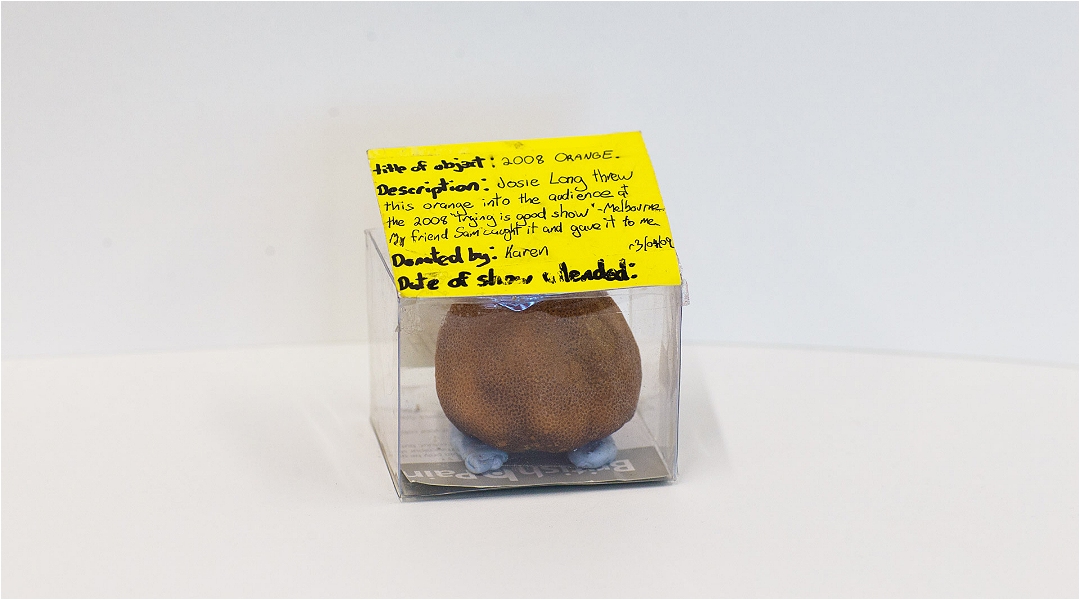 title of object: 2008 ORANGE.
Description: Josie Long threw
this orange into the audience at
the 2008 'Trying is good show' - Melbourne.
My friend Sam caught it and gave it to me.
Donated by: Karen
Date of show attended:
British Pain